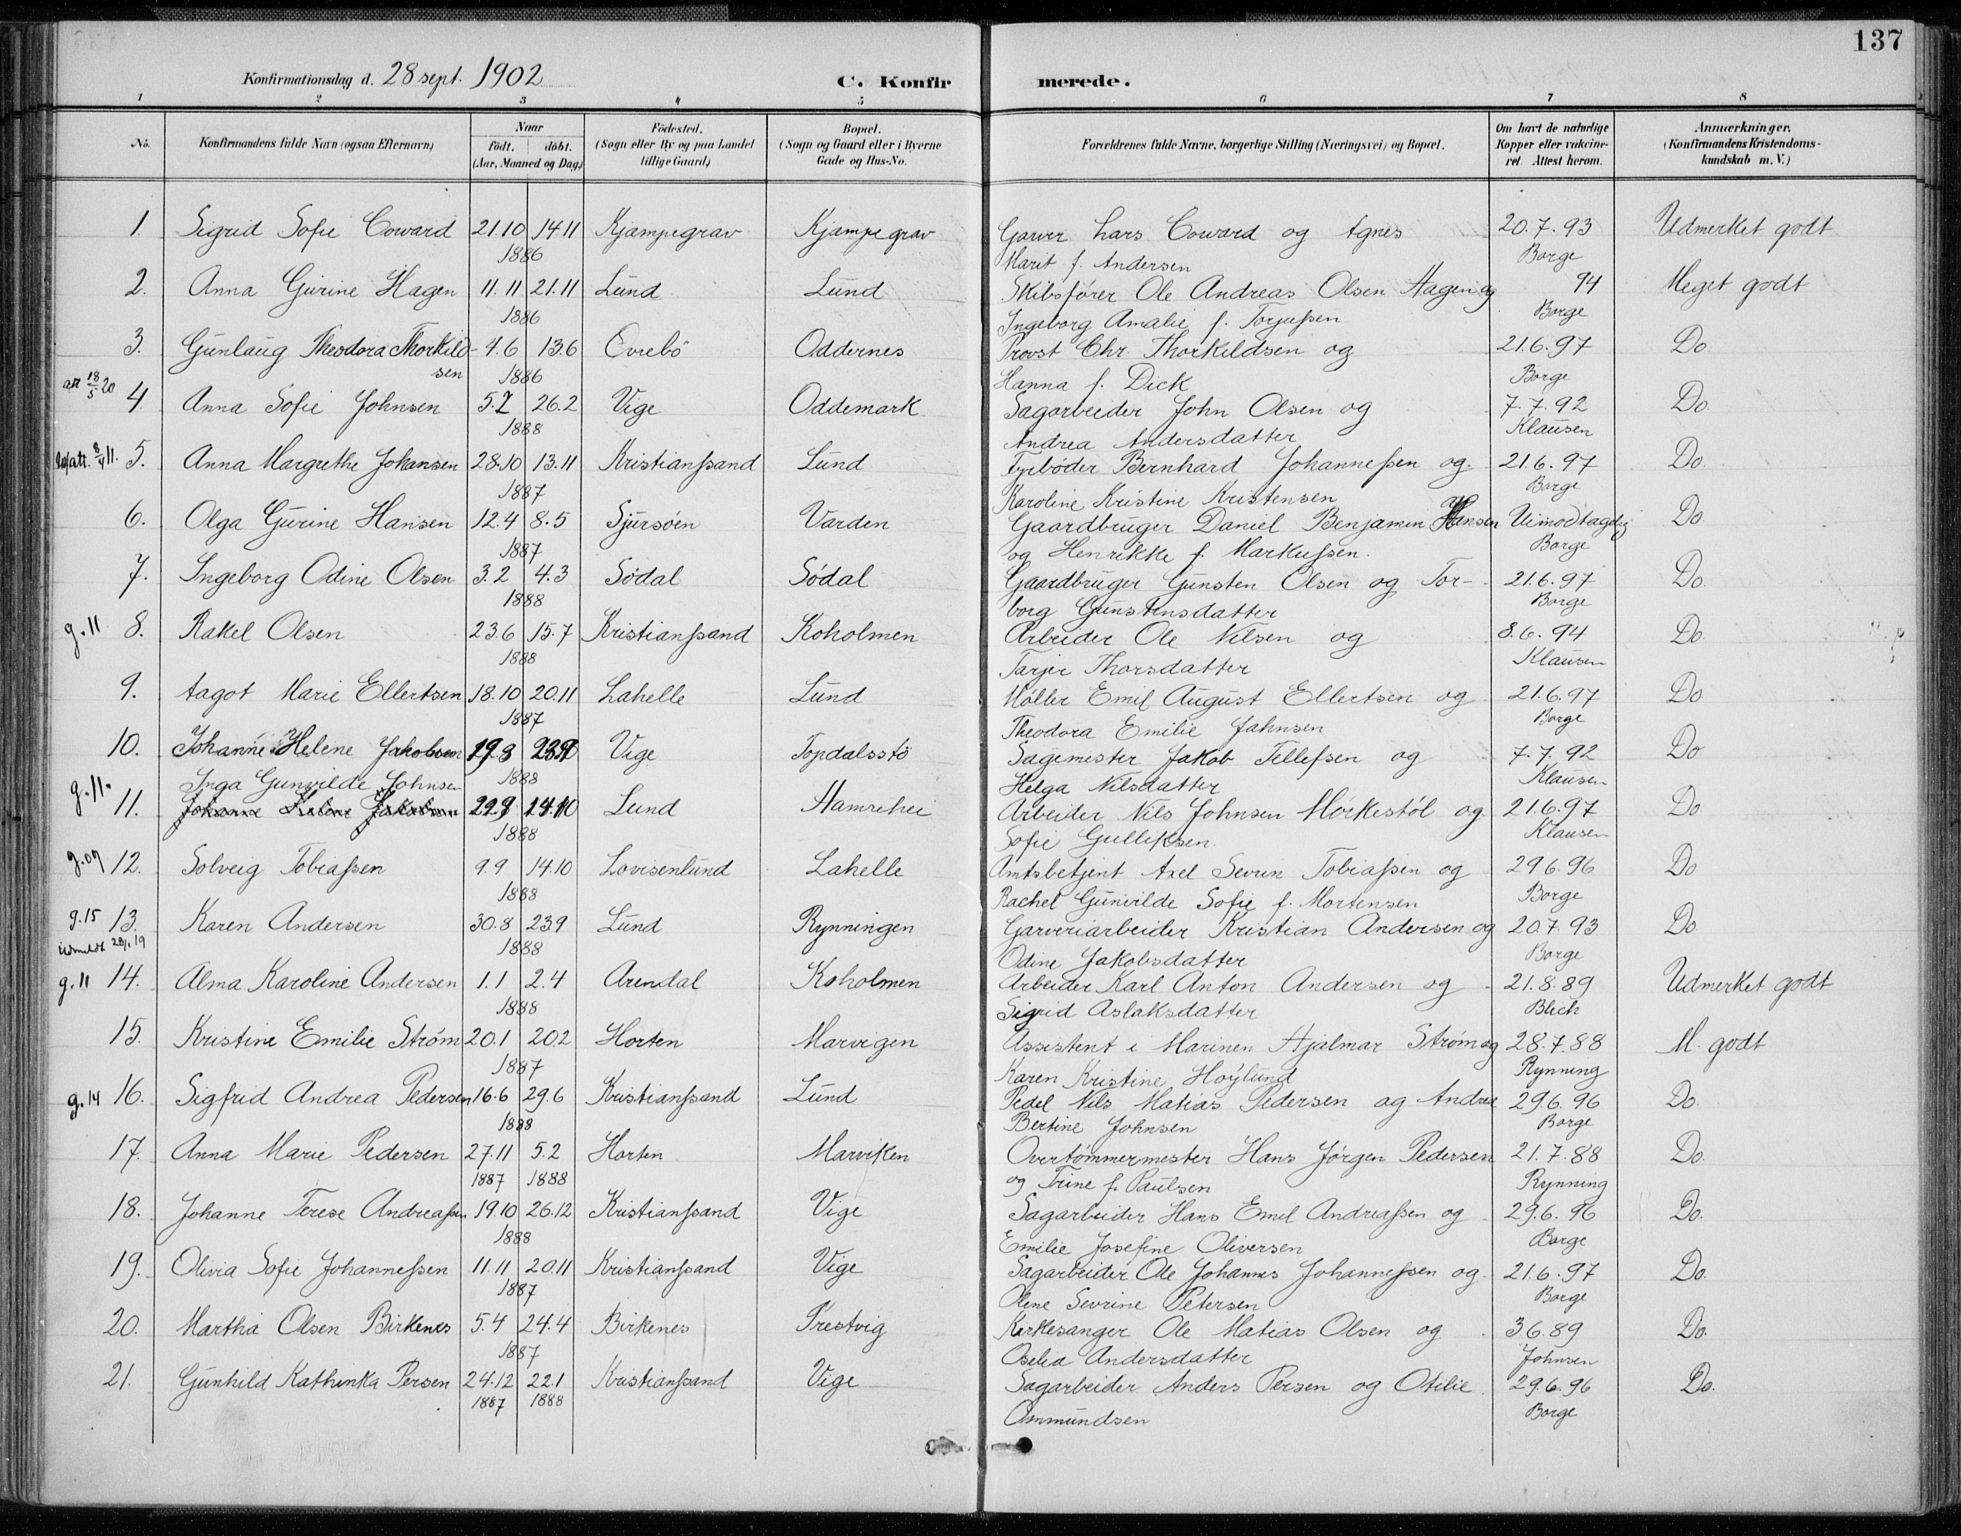 137
Konfirmationsdag d. 28 sept. 1902 C. Konfirmerede.
1 2 3 4 5 6 7 8
No. Konfirmandens fulde Navn (ogsaa Efternavn) Naar født. døbt. (Aar, Maaned og Dag) Fødested. (Sogn eller By og paa Landet tillige Gaard) Bopæl. (Sogn og Gaard eller i Byerne Gade og Hus-No. Forældrenes fulde Navne, borgerlige Stilling (Næringsvei) og Bopæl. Om havt de naturlige Kopper eller vakcineret. Attest herom. Anmærkninger. (Konfirmandens Kristendomskundskab m. V.)
1. Sigrid Sofie Coward 21.10 14.11 Kjæmpegrav Kjæmpegrav Garver Lars Coward og Agnes 20.7.93 Udmerket godt
1886 Marit f. Andersen Borge
2. Anna Gurine Hagen 11.11 21.11 Lund Lund Skibsfører Ole Andreas Olsen Hagen og 94 Meget godt
1886 Ingeborg Amalie f. Torjussen Borge
3. Gunlaug Theodora Thorkild- 4.6 13.6 Øvrebø Oddernes Provst Chr. Thorkildsen og 21.6.97 Do.
sen 1886 Hanna f. Dick Borge
att 18/5 20 4. Anna Sofie Johnsen 5.2 26.2 Vige Oddemark Sagarbeider John Olsen og 7.7.92 Do.
1888 Andrea Andersdatter Klausen
att. 8/4 11. 5. Anna Margrethe Johansen 28.10 13.11 Kristianssand Lund Fyrbøder Bernhard Johannessen og 21.6.97 Do.
1887 Karoline Kristine Kristensen Borge
6. Olga Gurine Hansen 12.4 8.5 Sjursøen Varden Gaardbruger Daniel Benjamin Hansen Uimodtagelig Do.
1887 og Henrikke f. Markussen. Borge
7. Ingeborg Odine Olsen 3.2 4.3 Sødal Sødal Gaardbruger Gunsten Olsen og Tor- 21.6.97 Do.
1888 borg Gunstensdatter Borge
g.11 8. Rakel Olsen 23.6 15.7 Kristianssand Koholmen Arbeider Ole Nilsen og 8.6.94 Do.
1888 Tarjer Thorsdatter Klausen
9. Aagot Marie Ellertsen 18.10 20.11 Lahelle Lund Møller Emil August Ellertsen og 21.6.97 Do
1887 Theodora Emilie Jahnsen Borge
10. Johanne Helene Jakobsen 19.8 23.9 Vige Topdalsstø Sagemester Jakob Tellefsen og 7.7.92 Do
1888 Helga Nilsdatter Klausen
g.11. Inga Gunvilde Johnsen
11. Johanne Helene Jakobsen 22.9 14.10 Lund Hamrehei Arbeider Nils Johnsen Mørkestøl og 21.6.97 Do
1888 Sofie Gulliksen. Klausen
g.09 12. Solveig Tobiassen 9.9 14.10 Lovisenlund Lahelle Amtsbetjent Axel Severin Tobiassen og 29.6.96 Do
1888 Rachel Gunvilde Sofie f. Mortensen Borge
g.15 13. Karen Andersen 30.8 23.9 Lund Rynningen Garveriarbeider Kristian Andersen og 20.7.93 Do.
udmeldt 28/1 19 1888 Odine Jakobsdatter Borge
g.11 14. Alma Karoline Andersen 1.1 2.4 Arendal Koholmen Arbeider Karl Anton Andersen og 21.8.89 Udmerket godt
1888 Sigrid Aslaksdatter Blich
15. Kristine Emilie Strøm 20.1 20.2 Horten Marvigen Assistent i Marinen Hjalmar Strøm og 28.7.88 M. godt
1887 Karen Kristine Høylund Rynning
g.14 16. Sigfrid Andrea Pedersen 16.6 29.6 Kristianssand Lund Pedel Nils Matias Pedersen og Andrea 29.6.96 Do.
1888 Bertine Johnsen Borge
17. Anna Marie Pedersen 27.11 5.2 Horten Marviken Overtømmermester Hans Jørgen Pedersen 21.7.88 Do.
1887 1888 og Trine f. Paulsen Rynning
18. Johanne Terese Andreassen 19.10 26.12 Kristianssand Vige Sagarbeider Hans Emil Andreassen og 29.6.96 Do.
1888 Emilie Josefine Oliversen Borge
19. Olivia Sofie Johannessen 11.11 20.11 Kristianssand Vige Sagarbeider Ole Johannes Johannessen og 21.6.97 Do.
1887 Oline Sevrine Petersen Borge
20. Martha Olsen Birkenes 5.4 24.4 Birkenes Prestvig Kirkesanger Ole Matias Olsen og 3.6.89 Do.
1887 Oselia Andersdatter Johnsen
21. Gunhild Kathinka Persen 24.12 22.1 Kristianssand Vige Sagarbeider Anders Persen og Otilie 29.6.96 Do.
1887 1888 Ommundsen Borge